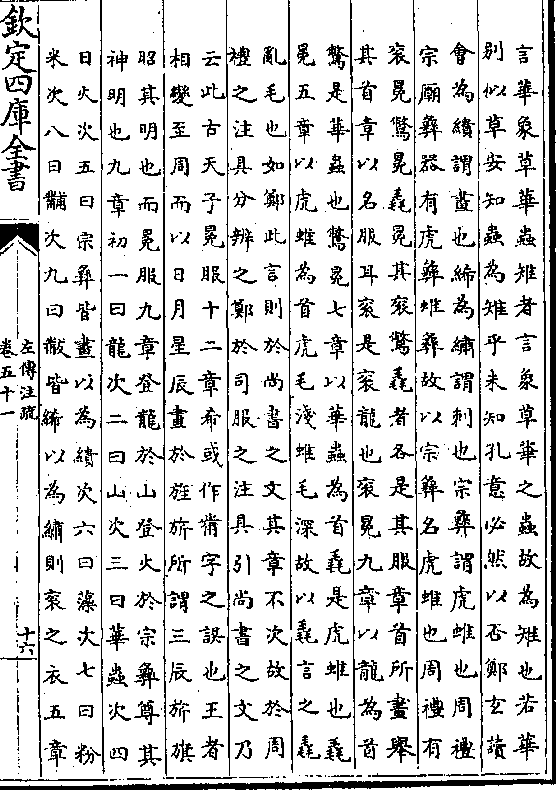 言華象草華蟲雉者言象草華之蟲故為雉也若華
别似草安知蟲為雉乎未知孔意必然以否鄭玄讀
會為繢謂畫也絺為繡謂刺也宗彝謂虎蜼也周禮
宗廟彝器有虎彝蜼彝故以宗彝名虎蜼也周禮有
衮冕鷩冕毳冕其衮鷩毳者各是其服章首所畫舉
其首章以名服耳衮是衮龍也衮冕九章以龍為首
鷩是華蟲也鷩冕七章以華蟲為首毳是虎蜼也毳
冕五章以虎蜼為首虎毛淺蜼毛深故以毳言之毳
亂毛也如鄭此言則於尚書之文其章不次故於周
禮之注具分辨之鄭於司服之注具引尚書之文乃
云此古天子冕服十二章希或作黹字之誤也王者
相變至周而以日月星辰畫於旌旂所謂三辰旂旗
昭其明也而冕服九章登龍於山登火於宗彝尊其
神明也九章初一曰龍次二曰山次三曰華蟲次四
曰火次五曰宗彝皆畫以為繢次六曰藻次七曰粉
米次八曰黼次九曰黻皆絺以為繡則衮之衣五章
欽定四庫全書
左傳注疏
卷五十一
十六